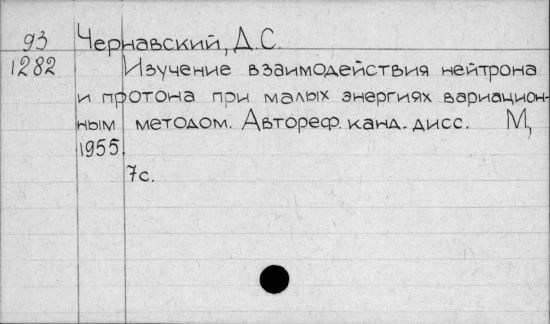 93 Чернавский, Д.С.
1282 Изучение взаимодействия нейтрона
и протона при малых энергиях вариацион-
ным методом. Автореф. канд. дисс. М,
1955.
7с.